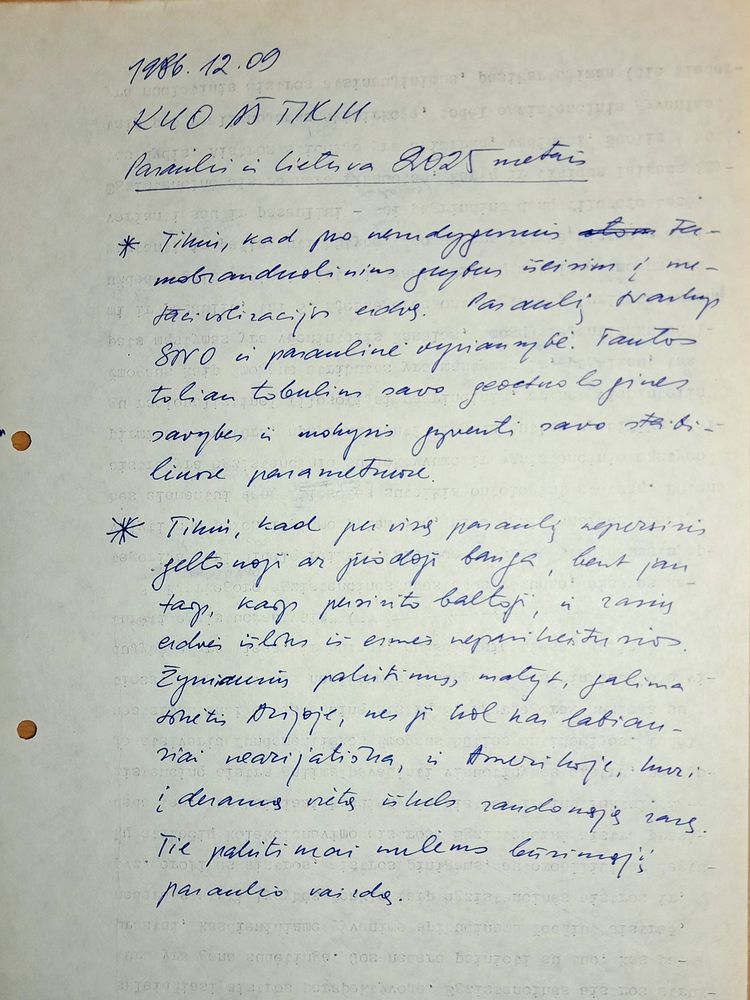 1986.12.09
KUO AŠ TIKIU
Pasaulis ir Lietuva 2025 metais
* Tikiu, kad pro nesudygusius atom Ter-
mobranduolinius grybus išeisim į me-
tacivilizacijos erdvę. Pasaulį tvarkys
SNO ir pasaulinė vyriausybė. Tautos
toliau tobulins savo geoetnologines
savybes ir mokysis gyventi savo stabi-
liuose parametruose.
* Tikiu, kad per visą pasaulį nepersiris
geltonoji ar juodoji banga, bent jau
taip, kaip persirito baltoji, ir rasių
erdvės išliks iš esmės nepasikeitusios.
Žymiausių pakitimų, matyt, galima
tikėtis Azijoje, nes ji kol kas labiau-
siai neazijatiška, ir Amerikoje, kuri
į deramą vietą iškels raudonąją rasę.
Tie pakitimai nulems būsimąjį
pasaulio vaizdą.